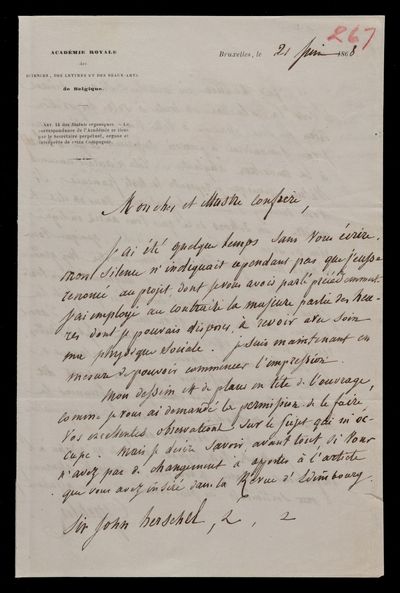 267
ACADÉMIE ROYALE
des
SCIENCES, DES LETTRES ET DES BEAUX-ARTS
de Belgique.
Bruxelles, le 21 juin 1868
ART. 14 des Statuts organiques. — La
correspondance de l'Académie se tient
par le Secrétaire perpétuel, organe et
interprète de cette Compagnie.
Mon cher et illustre confrère,
J'ai été quelque temps sans vous écrire.
mon silence n'indiquait cependant pas que j'eusse
renoncé au projet dont je vous avois parlé précédemment.
J'ai employé au contraire la majeure partie des heu-
res dont je pouvais disposer, à revoir avec soin
ma physique sociale. Je suis maintenant en
mesure de pouvoir commencer l'impression.
Mon dessein est de placer en tête de l'ouvrage,
comme je vous ai demandé la permission de le faire
vos excellentes observations sur le sujet qui m'oc-
cupe. Mais je désire savoir avant tout si vous
n'avez pas de changement à apporter à l'article
que vous avez inséré dans la Revue d'Edimbourg.
Sir John Herschel, 2, 2